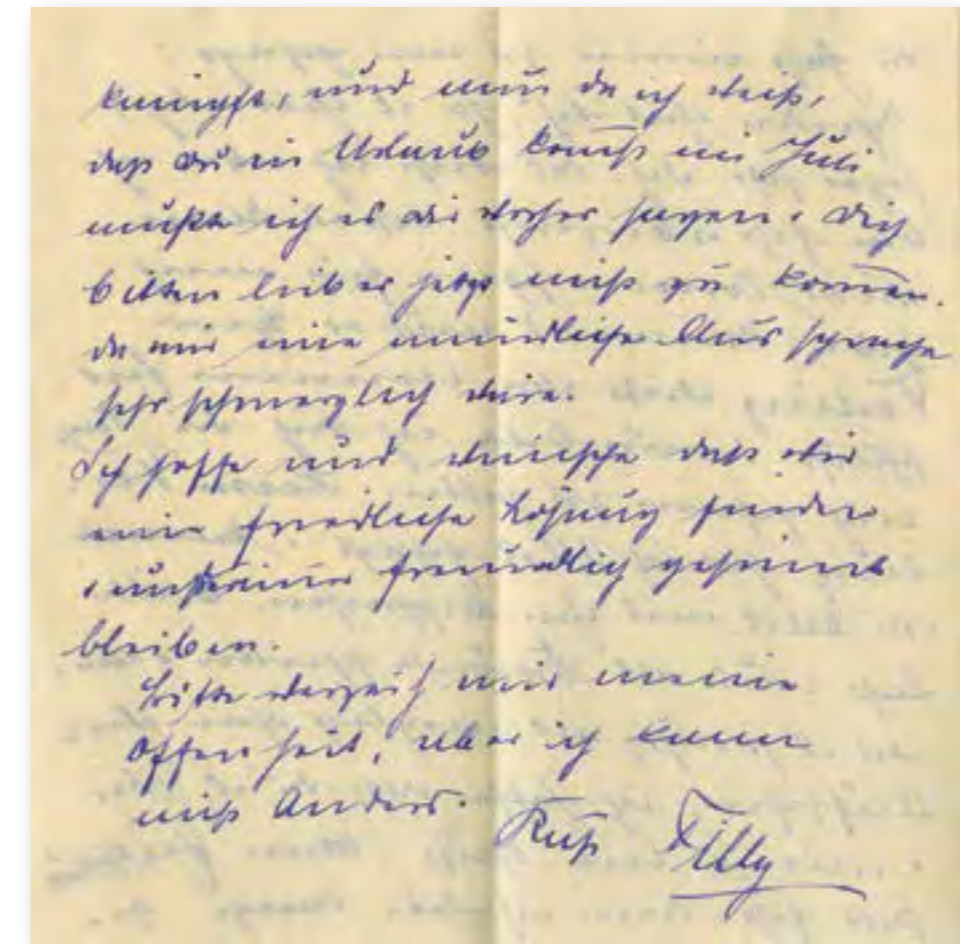 knüpft, und nun da ich weiß,
daß du in Urlaub kom̄st im Juli
mußte ich es dir vorher sagen. Dich
bitten lieber jetzt nicht zu kom̄en.
da mir eine mündliche Aussprache
sehr schmerzlich wäre.
Ich hoffe und wünsche daß wir
eine friedliche Lösung finden
freundlich gesinnt
bleiben.
Bitte verzeih mir meine
Offenheit, aber ich kann
nicht Anders. Kuß Tilly